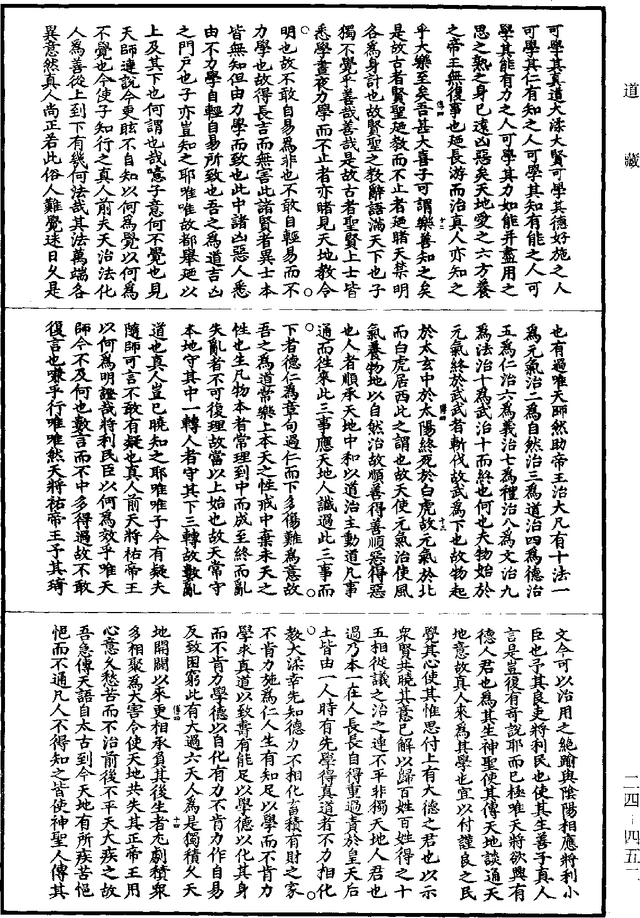 道藏
可學其真道大深大賢可學其德好施之人
可學其仁有知之人可學其知有能之人可
學其能有力之人可學其力如能并盡用之
思之熟之身已遠凶惡矣天地愛之六方養
之帝王無復事也迺長游而治真人亦知之
乎大樂至矣吾甚大喜子可謂樂善知之矣
是故古者賢聖迺教而不止者迺睹天禁明
各為身計也故賢聖之教辭語滿天下也子
獨不覺乎善哉善哉是故古者聖賢上士皆
悉學晝夜力學而不止者亦睹見天地教令
明也故不敢自易為非也不敢自輕易而不
力學也故得長吉而無害此諸賢者異士本
皆無知但由力學而致也此中諸凶惡人悉
由不力學自輕自易所致也吾之為道吉凶
之門戶也子亦豈知之耶唯唯故都舉廼以
上及其下也何謂也哉噫子意何不覺也見
天師連說令更眩不自知以何為覺以何為
不覺也今使子知行之真人前夫天治法化
人為善從上到下有幾何法哉其法萬端各
異意然真人尚正若此俗人難覺迷日久是
也有過唯天師然助帝王治大凡有十法一
為元氣治二為自然治三為道治四為德治
五為仁治六為義治七為禮治八為文治九
為法治十為武治十而終也何也夫物始於
元氣終於武武者斬伐故武為下也故物起
於太玄中於太陽終死於白虎故元氣於北
而白虎居西此之謂也故天使元氣治使風
氣養物地以自然治故順善得善順惡得惡
也人者順承天地中和以道治主動道凡事
通而往來此三事應天地人讖過此三事而
下者德仁為章句過仁而下多傷難為意故
吾之為道常樂上本天之性戒中棄末天之
性也生凡物本者常理到中而成至終而亂
失亂者不可復理故當以上始也故天常守
本地守其中一轉人者守其下三轉故數亂
道也真人豈已曉知之耶唯唯子今有疑夫
隨師可言不敢有疑也真人前天將祐帝王
以何為明證哉將利民臣以何為效乎唯天
師今不及何也數言而不中多得過故不敢
復言也嗛乎行唯唯然天將祐帝王予其琦
文令可以治用之絕踰與陰陽相應將利小
臣也予其良吏將利民也使其生善子真人
言是豈復有奇說耶而已極唯天將欲興有
德人君也為其生神聖使其傳天地談通天
地意故真人來為其學也宜以付謹良之民
覺其心使其惟思付上有大德之君也以示
眾賢共曉其意已解以歸百姓百姓得之十
五相從議之治之連不平非獨天地人君也
過乃本一在人長長自得重過責於皇天后
土皆由一人時有先學得真道者不力相化
教大深幸先知德力不相化畜積有財之家
不肯力施為仁人生有知足以學而不肯力
學求真道以致壽有能足以學德以化其身
而不肯力學德以自化有力不肯力作自易
反致困窮此有大過六天人為是獨積久天
地開闢以來更相承負其後生者尤劇積眾
多相聚為大害令使天地共失其正帝王用
心意久愁苦而不治前後不平天大疾之故
吾急傳天語自太古到今天地有所疾苦悒
悒而不通凡人不得知之皆使神聖人傳其
二四—四五二